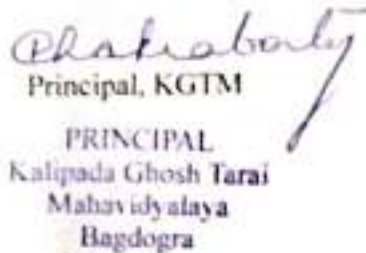 Chakraborty
Principal, KGTM
PRINCIPAL
Kalipada Ghosh Tarai
Mahavidyalaya
Bagdogra